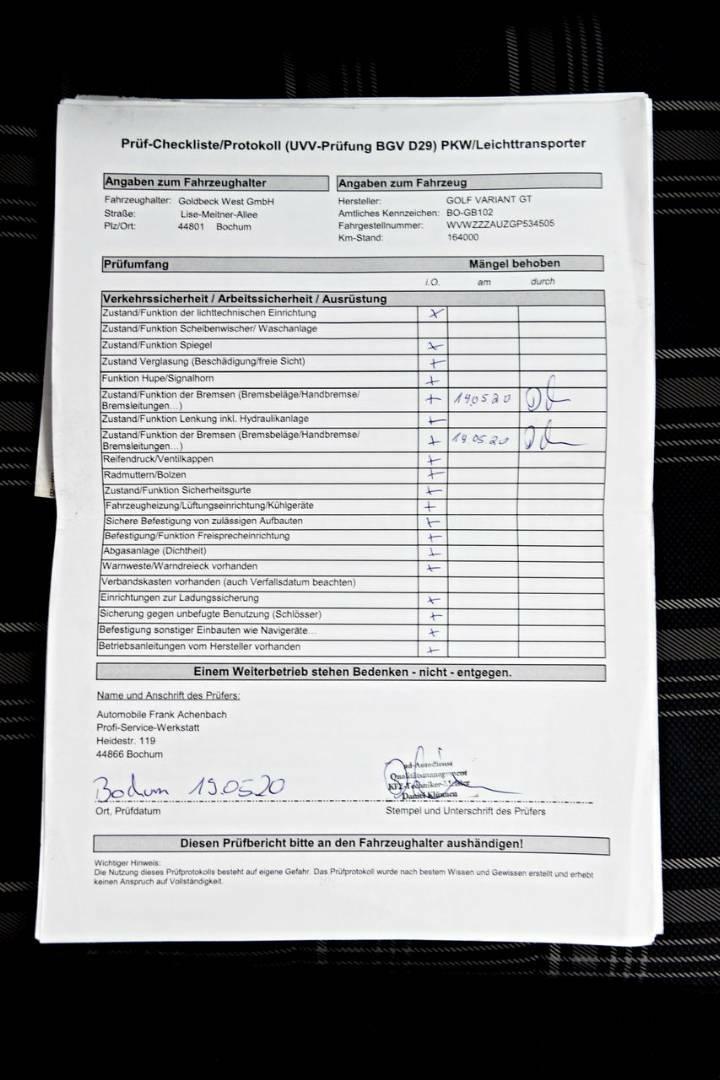 Prüf-Checkliste/Protokoll (UVV-Prüfung BGV D29) PKW/Leichttransporter
Angaben zum Fahrzeughalter
Fahrzeughalter: Goldbeck West GmbH
Straße: Lise-Meitner-Allee
Plz/Ort: 44801 Bochum
Angaben zum Fahrzeug
Hersteller: GOLF VARIANT GT
Amtliches Kennzeichen: BO-GB102
Fahrgestellnummer: WVWZZZAUZGP534505
Km-Stand: 164000
Prüfumfang Mängel behoben
i.O. am durch
Verkehrssicherheit / Arbeitssicherheit / Ausrüstung
Zustand/Funktion der lichttechnischen Einrichtung x
Zustand/Funktion Scheibenwischer/ Waschanlage
Zustand/Funktion Spiegel x
Zustand Verglasung (Beschädigung/freie Sicht) +
Funktion Hupe/Signalhorn +
Zustand/Funktion der Bremsen (Bremsbeläge/Handbremse/
Bremsleitungen...) + 190520
Zustand/Funktion Lenkung inkl. Hydraulikanlage +
Zustand/Funktion der Bremsen (Bremsbeläge/Handbremse/
Bremsleitungen...) + 190520
Reifendruck/Ventilkappen +
Radmuttern/Bolzen +
Zustand/Funktion Sicherheitsgurte +
Fahrzeugheizung/Lüftungseinrichtung/Kühlgeräte +
Sichere Befestigung von zulässigen Aufbauten +
Befestigung/Funktion Freisprecheinrichtung +
Abgasanlage (Dichtheit) +
Warnweste/Warndreieck vorhanden +
Verbandskasten vorhanden (auch Verfallsdatum beachten)
Einrichtungen zur Ladungssicherung +
Sicherung gegen unbefugte Benutzung (Schlösser) +
Befestigung sonstiger Einbauten wie Navigeräte... +
Betriebsanleitungen vom Hersteller vorhanden +
Einem Weiterbetrieb stehen Bedenken - nicht - entgegen.
Name und Anschrift des Prüfers:
Automobile Frank Achenbach
Profi-Service-Werkstatt
Heidestr. 119
44866 Bochum
Bochum 190520
Ort, Prüfdatum
Stempel und Unterschrift des Prüfers
Diesen Prüfbericht bitte an den Fahrzeughalter aushändigen!
Wichtiger Hinweis:
Die Nutzung dieses Prüfprotokolls besteht auf eigene Gefahr. Das Prüfprotokoll wurde nach bestem Wissen und Gewissen erstellt und erhebt
keinen Anspruch auf Vollständigkeit.